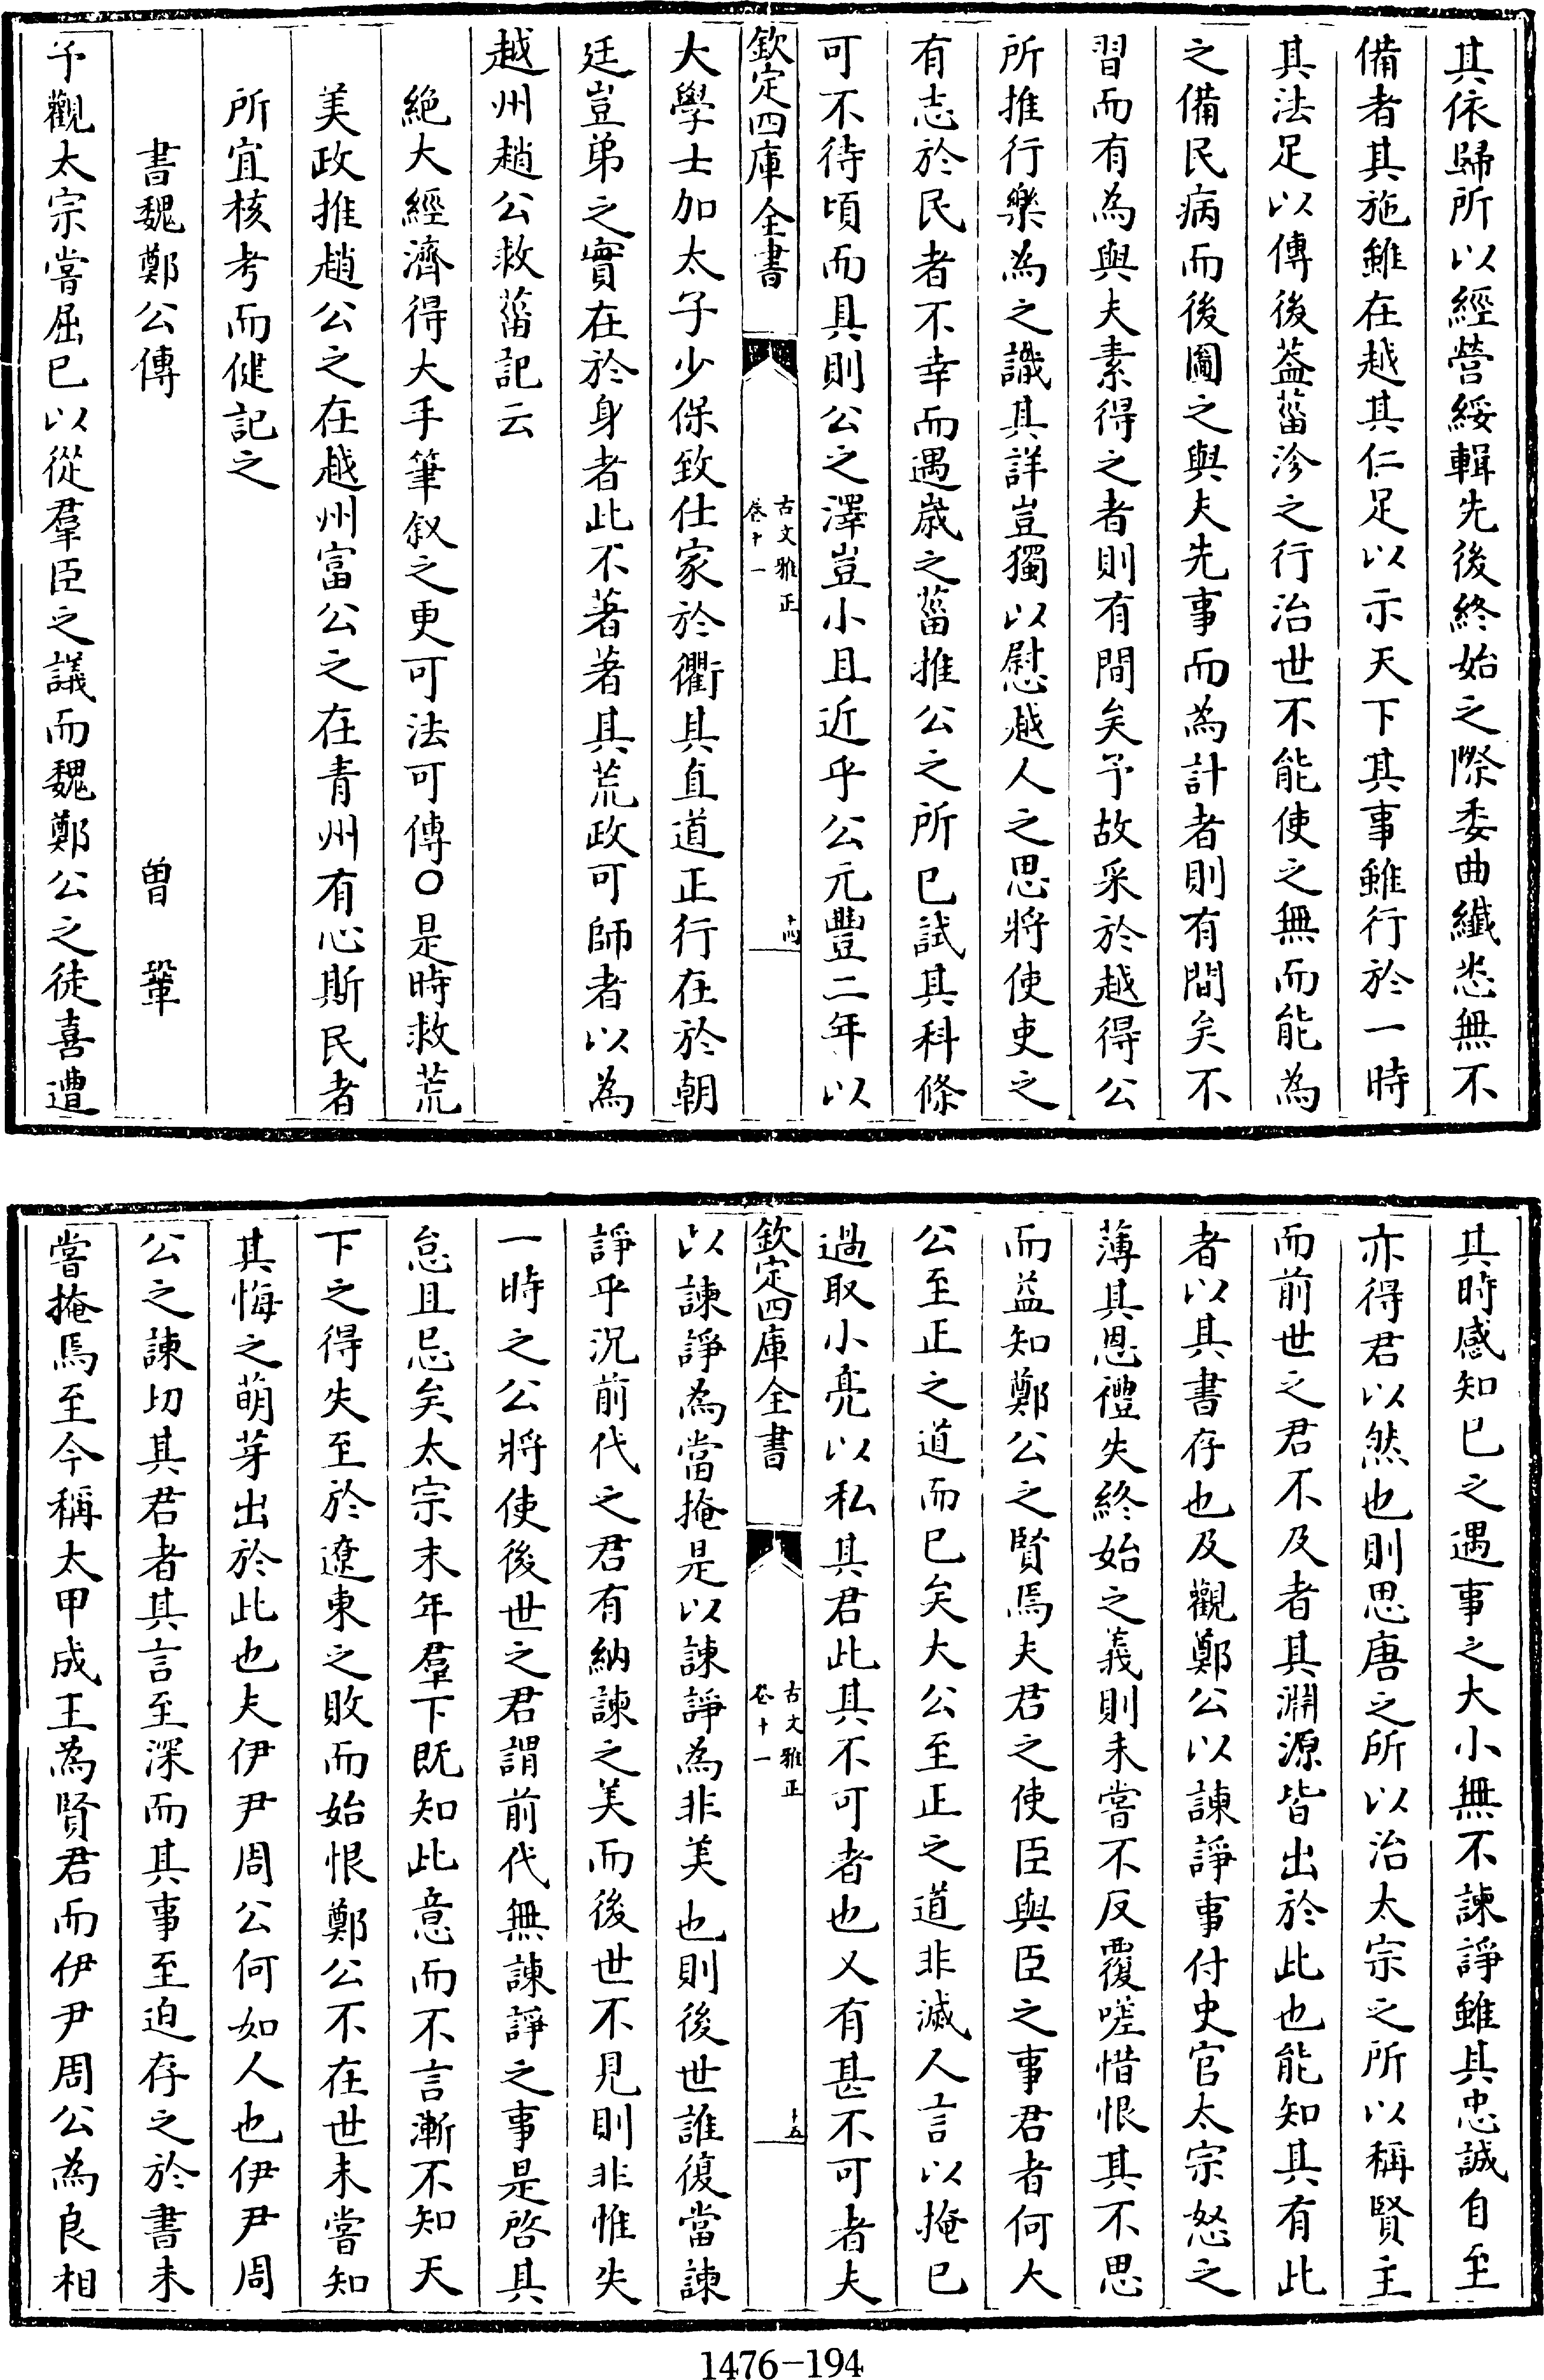 其依歸所以經營綏輯先後終始之際委曲纎悉無不
備者其施雖在越其仁足以示天下其事雖行於一時
其法足以傳後葢菑沴之行治世不能使之無而能為
之備民病而後圖之與夫先事而為計者則有間矣不
習而有為與夫素得之者則有間矣予故采於越得公
所推行樂為之識其詳豈獨以慰越人之思將使吏之
有志於民者不幸而遇歲之菑推公之所已試其科條
可不待頃而具則公之澤豈小且近乎公元豐二年以
欽定四庫全書
古文雅正
卷十一
十四
大學士加太子少保致仕家於衢其直道正行在於朝
廷豈弟之實在於身者此不著著其荒政可師者以為
越州趙公救菑記云
絶大經濟得大手筆叙之更可法可傳○是時救荒
美政推趙公之在越州富公之在青州有心斯民者
所宜核考而健記之
書魏鄭公傳 曾鞏
予觀太宗嘗屈已以從羣臣之議而魏鄭公之徒喜遭
其時感知已之遇事之大小無不諫諍雖其忠誠自至
亦得君以然也則思唐之所以治太宗之所以稱賢主
而前世之君不及者其淵源皆出於此也能知其有此
者以其書存也及觀鄭公以諫諍事付史官太宗怒之
薄其恩禮失終始之義則未嘗不反覆嗟惜恨其不思
而益知鄭公之賢焉夫君之使臣與臣之事君者何大
公至正之道而已矣大公至正之道非滅人言以掩已
過取小亮以私其君此其不可者也又有甚不可者夫
欽定四庫全書
古文雅正
卷十一
十五
以諫諍為當掩是以諫諍為非美也則後世誰復當諫
諍乎況前代之君有納諫之美而後世不見則非惟失
一時之公將使後世之君謂前代無諫諍之事是啓其
怠且忌矣太宗末年羣下既知此意而不言漸不知天
下之得失至於遼東之敗而始恨鄭公不在世未嘗知
其悔之萌芽出於此也夫伊尹周公何如人也伊尹周
公之諫切其君者其言至深而其事至迫存之於書未
嘗掩焉至今稱太甲成王為賢君而伊尹周公為良相
1476-194